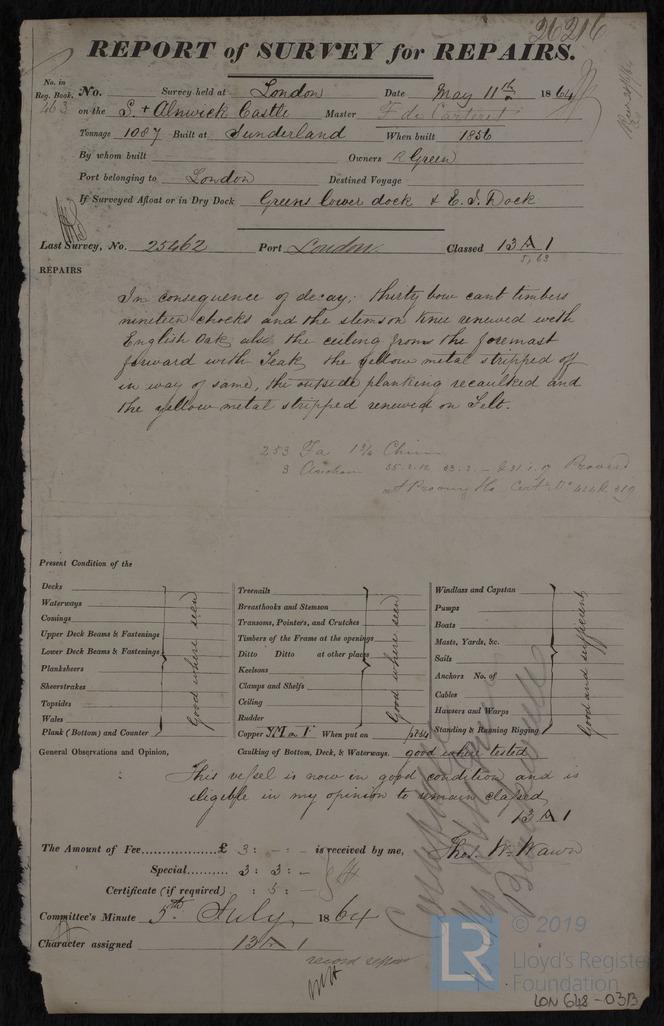 26216
REPORT of SURVEY for REPAIRS.
No. in Reg. Book.
463
No. Survey held at London Date May 11th 1864
on the S. + Alnwick Castle Master F de Carteret
Tonnage 1087 Built at Sunderland When built 1856
By whom built Owners R Green
Port belonging to London Destined Voyage
If Surveyed Afloat or in Dry Dock Greens lower dock & E. I. Dock
Last Survey, No. 25462 Port London. Classed 13 A 1
5, 63
REPAIRS
In consequence of decay, thirty bow cant timbers
nineteen chocks and the stemson knee renewed with
English Oak also the ceiling from the foremast
forward with Teak, the yellow metal stripped off
in way of same, the outside planking recaulked and
the yellow metal stripped renewed on Felt.
253 Fa 1 3/4 Chain
3 Anchors Proved
at Proving Ho. Certe
Present Condition of the
Decks
Waterways
Comings
Upper Deck Beams & Fastenings
Lower Deck Beams & Fastenings
Planksheers
Sheerstrakes
Topsides
Wales
Plank (Bottom) and Counter
Good where seen
Treenails
Breasthooks and Stemson
Transoms, Pointers, and Crutches
Timbers of the Frame at the openings
Ditto Ditto at other places
Keelsons
Clamps and Shelfs
Ceiling
Rudder
Good where seen
Copper YM on F When put on
Windlass and Capstan
Pumps
Boats
Masts, Yards, &c.
Sails
Anchors No. of
Cables
Hawsers and Warps
Standing & Running Rigging
Good and sufficient
General Observations and Opinion, Caulking of Bottom, Deck, & Waterways. good where tested
This vessel is now in good condition and is
eligible in my opinion to remain classed
13 A 1
The Amount of Fee £ 3 : - : - is received by me, Thos. W. Wawn
Special 3 : 3 : -
Certificate (if required) : 5 : -
Committee's Minute 5th July 1864
Character assigned 13 A 1
© 2019
LR
Lloyd's Register
Foundation
LON 648-0313